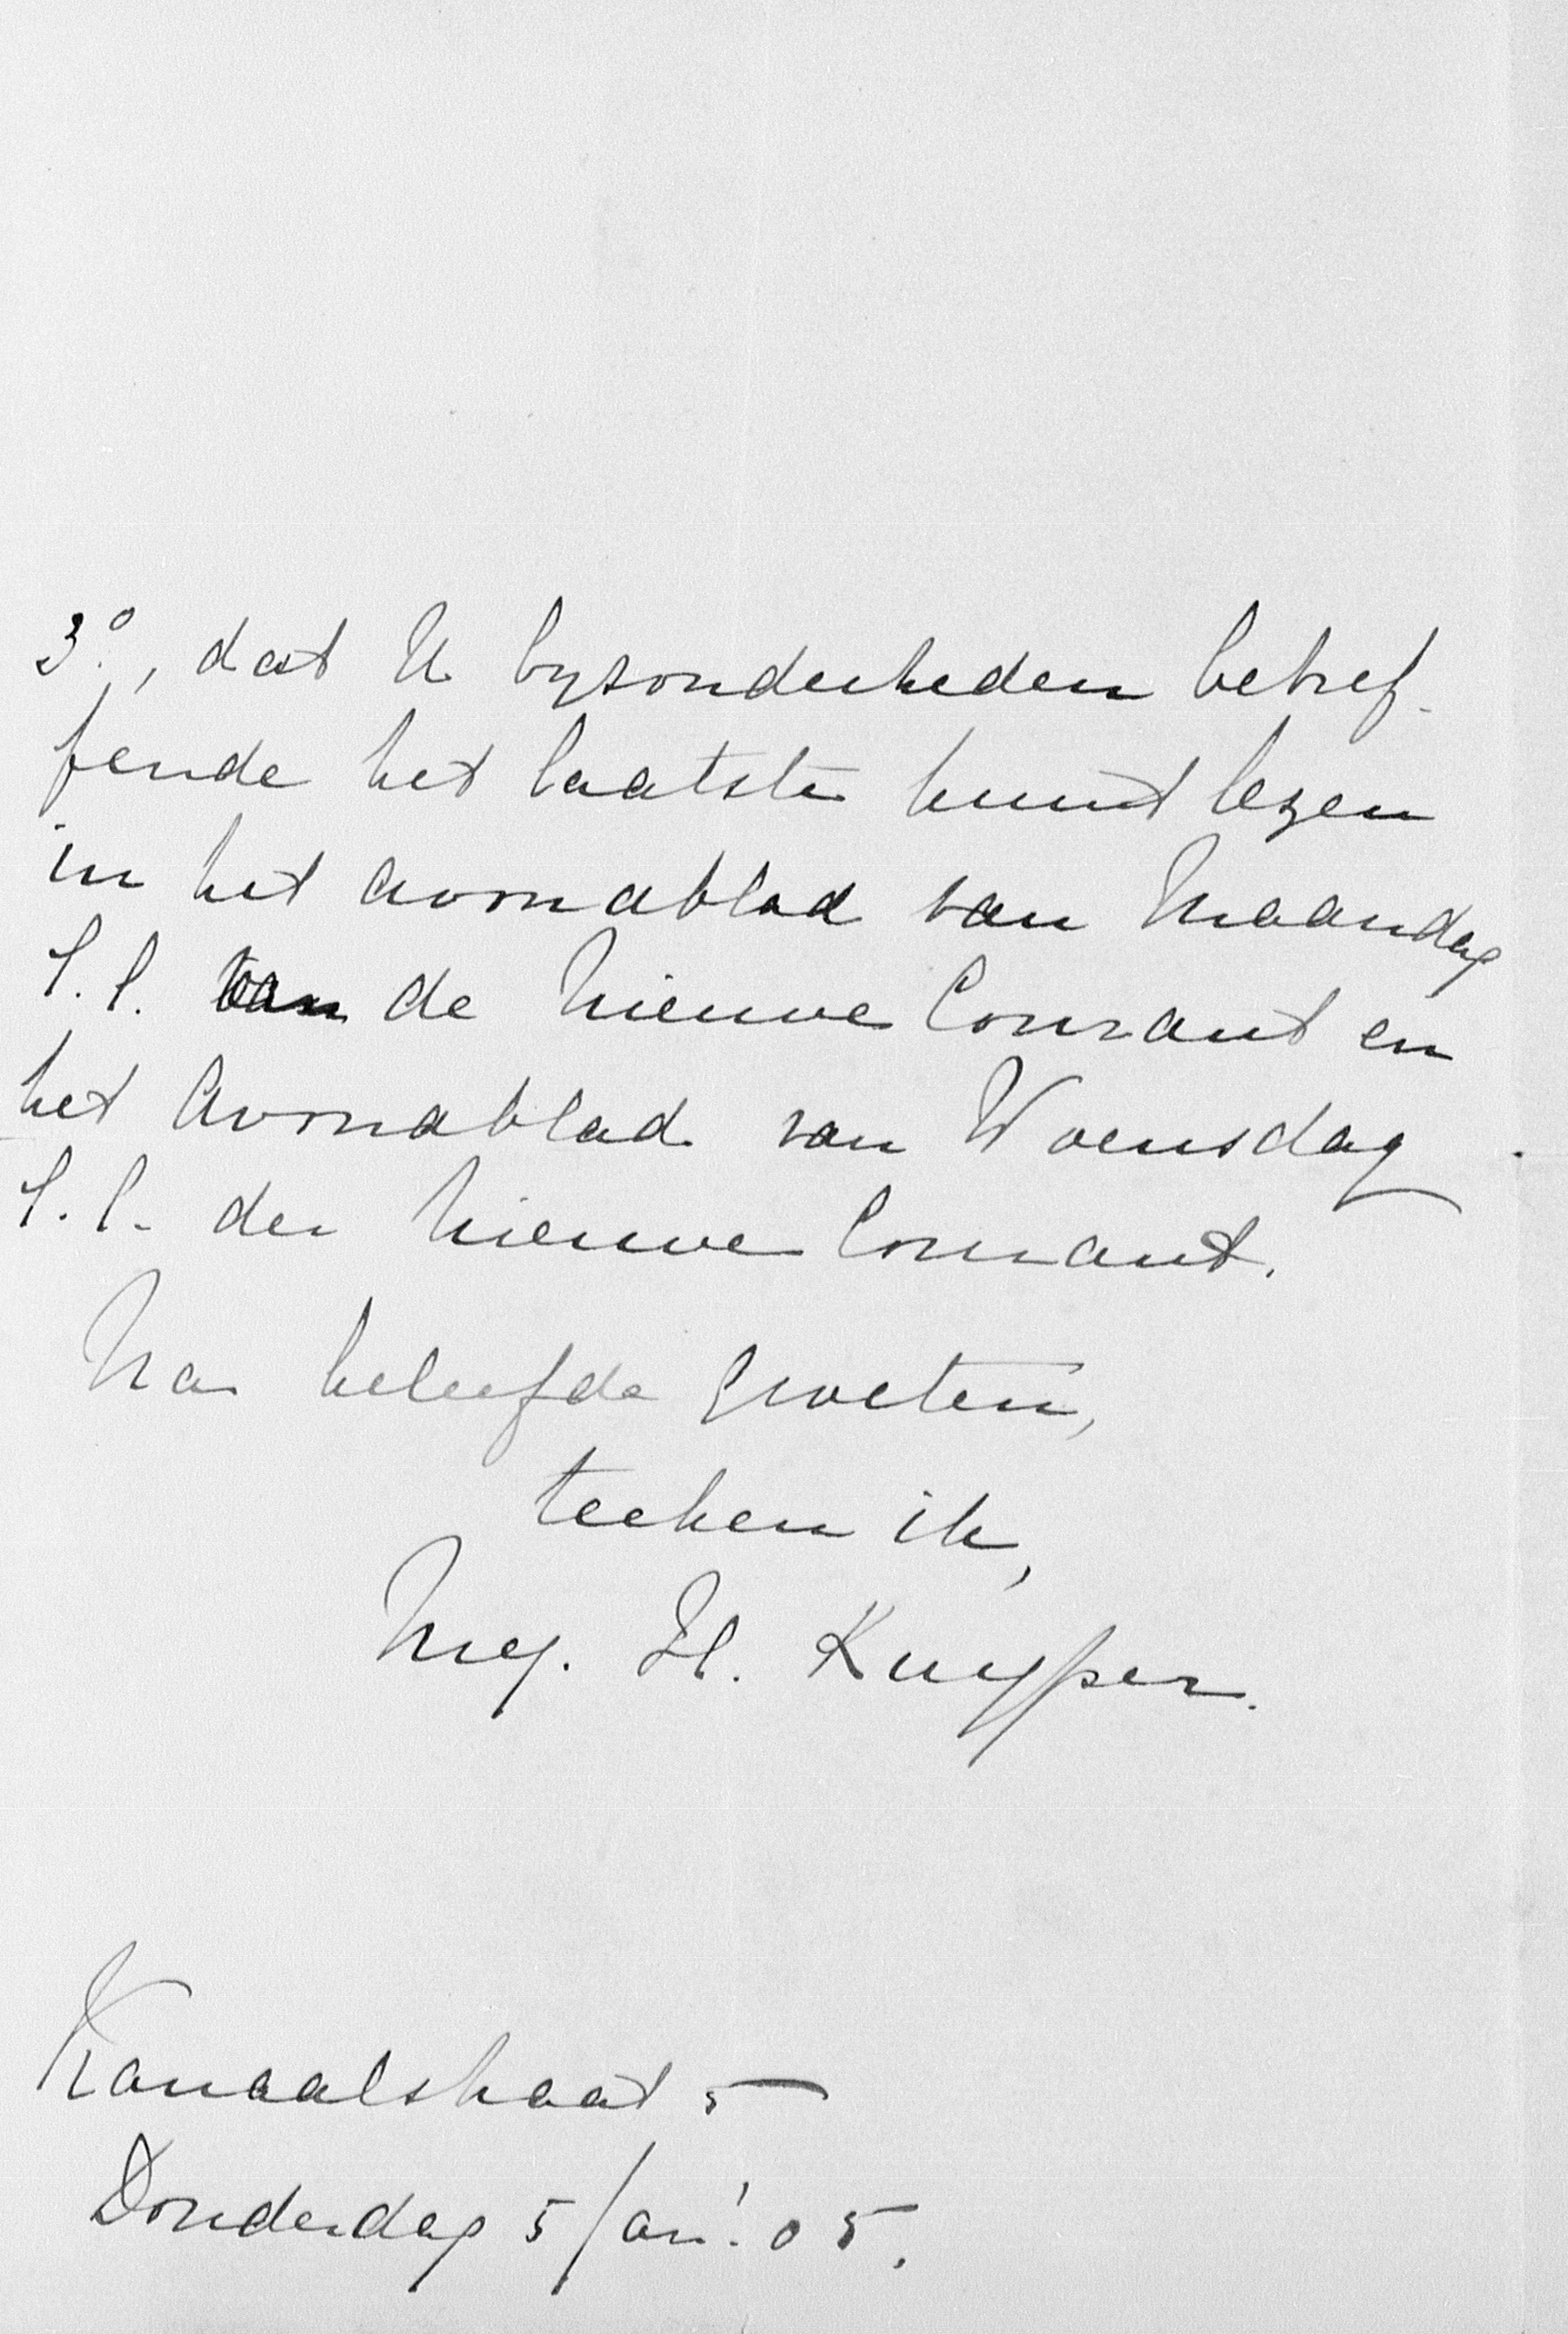 3º., dat U byzonderheden betref-
fende het laatste kunt lezen
in het avondblad van Maandag
l.l. van de Nieuwe Courant en
het Avondblad van Woensdag
l.l. der Nieuwe Courant.
Na beleefde groeten,
teeken ik,
Mej. H. Kuyper.
Kanaalstraat 5
Donderdag 5 Jan. '05.